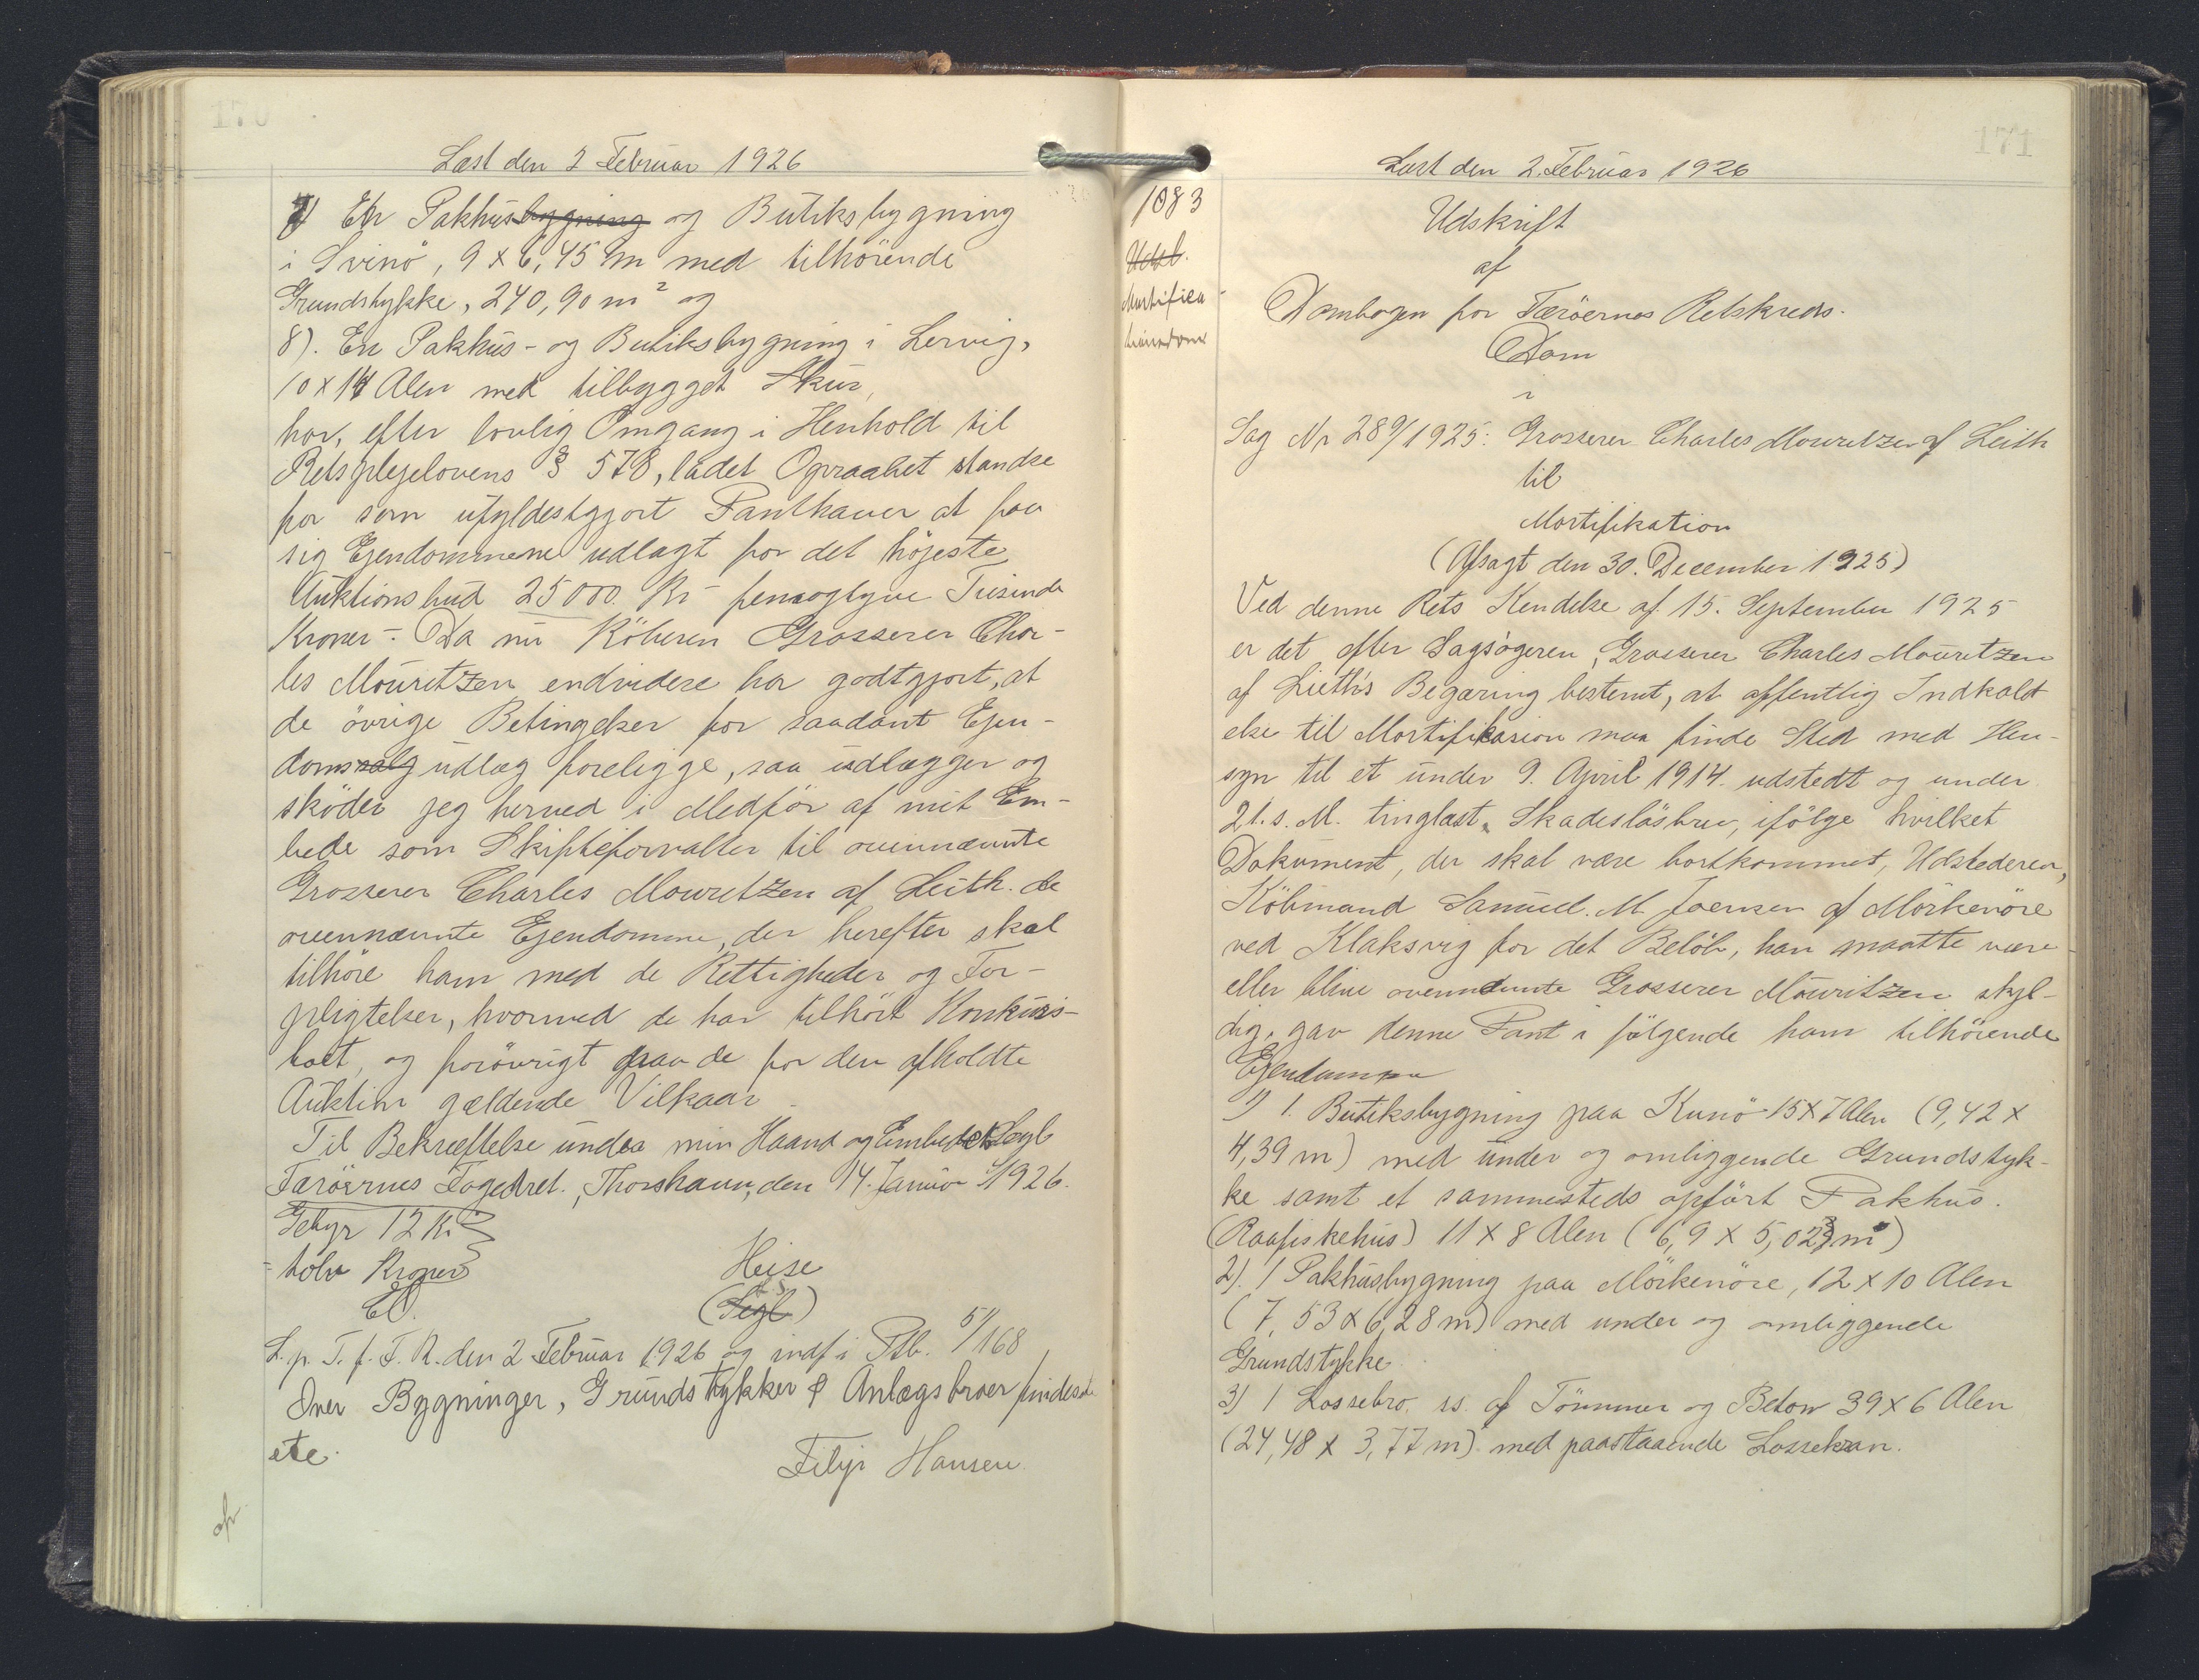 170
Læst den 2 Februar 1926
7) En Pakhusbygning og Butiksbygning
i Svinö, 9 x 6,45 m med tilhörende
Grundstykke, 240,90 m² og
8). En Pakhus- og Butiksbygning i Lervig,
10 x 14 Alen med tilbygget Skur,
har, efter lovlig Omgang i Henhold til
Retsplejelovens § 578, ladet Opraabet standse
for som ufyldestgjort Panthaver at faa
sig Ejendommene udlagt for det højeste
Auktionsbud 25000 Kr - femogtyve Tusinde
Kroner -. Da nu Köberen Grosserer Char-
les Mouritzen endvidere har godtgjort, at
de övrige Betingelser for saadant Ejen-
domssalg udlæg foreligge, saa udlægger og
sköder jeg herved i Medför af mit Em-
bede som Skifteforvalter til ovennævnte
Grosserer Charles Mouritzen af Leith de
ovennævnte Ejendomme, der herefter skal
tilhöre ham med de Rettigheder og For-
pligtelser, hvormed de har tilhört Konkurs-
boet, og forövrigt paa de for den afholdte
Auktion gældende Vilkaar.
Til Bekræftelse under min Haand og Embedets Segl
Færöernes Fogedret., Thorshavn, den 14. Januar 1926.
Gebyr 12 Kr
- tolv Kroner
El.
Heise
L.S.
(Segl)
L. p. T. f. F. R. den 2 Februar 1926 og indf i Ptb. 5/168
Over Bygninger, Grundstykker & Anlægsbroer findes
ete.
Filip Hansen
afr
171
Læst den 2. Februar 1926
1083
Udsk.
Mortifica-
tionsdom
Udskrift
af
Dombogen for Færöernes Retskreds.
Dom
i
Sag Nr 289/1925: Grosserer Charles Mouritzen af Leith
til
Mortifikation
(Afsagt den 30. December 1925)
Ved denne Rets Kendelse af 15. September 1925
er det efter Sagsögeren, Grosserer Charles Mouritzen
af Lieth's Begæring bestemt, at offentlig Indkald
else til Mortifikasion maa finde Sted med Hen-
syn til et under 9. April 1914 udstedt og under
21. s. M. tinglæst Skadeslösbrev, ifölge hvilket
Dokument, der skal være bortkommet, Udstederen,
Köbmand Samuel. M. Joensen af Mörkenöre
ved Klaksvig for det Belöb, han maatte være
eller blive ovennævnte Grosserer Mouritzen skyl-
dig, gav denne Pant i fölgende ham tilhörende
Ejendomme
1) 1. Butiksbygning paa Kunö 15 x 7 Alen (9,42 x
4,39 m) med under og omliggende Grundstyk-
ke samt et sammesteds opfört Pakhus.
(Raafiskehus) 11 x 8 Alen (6,9 x 5,023 m)
2). 1 Pakhusbygning paa Mörkenöre, 12 x 10 Alen
(7,53 x 6,28 m) med under og omliggende
Grundstykke.
3) 1 Lossebro. ss. af Tömmer og Beton 39 x 6 Alen
(24,48 x 3,77 m). med paastaaende Lossekran.